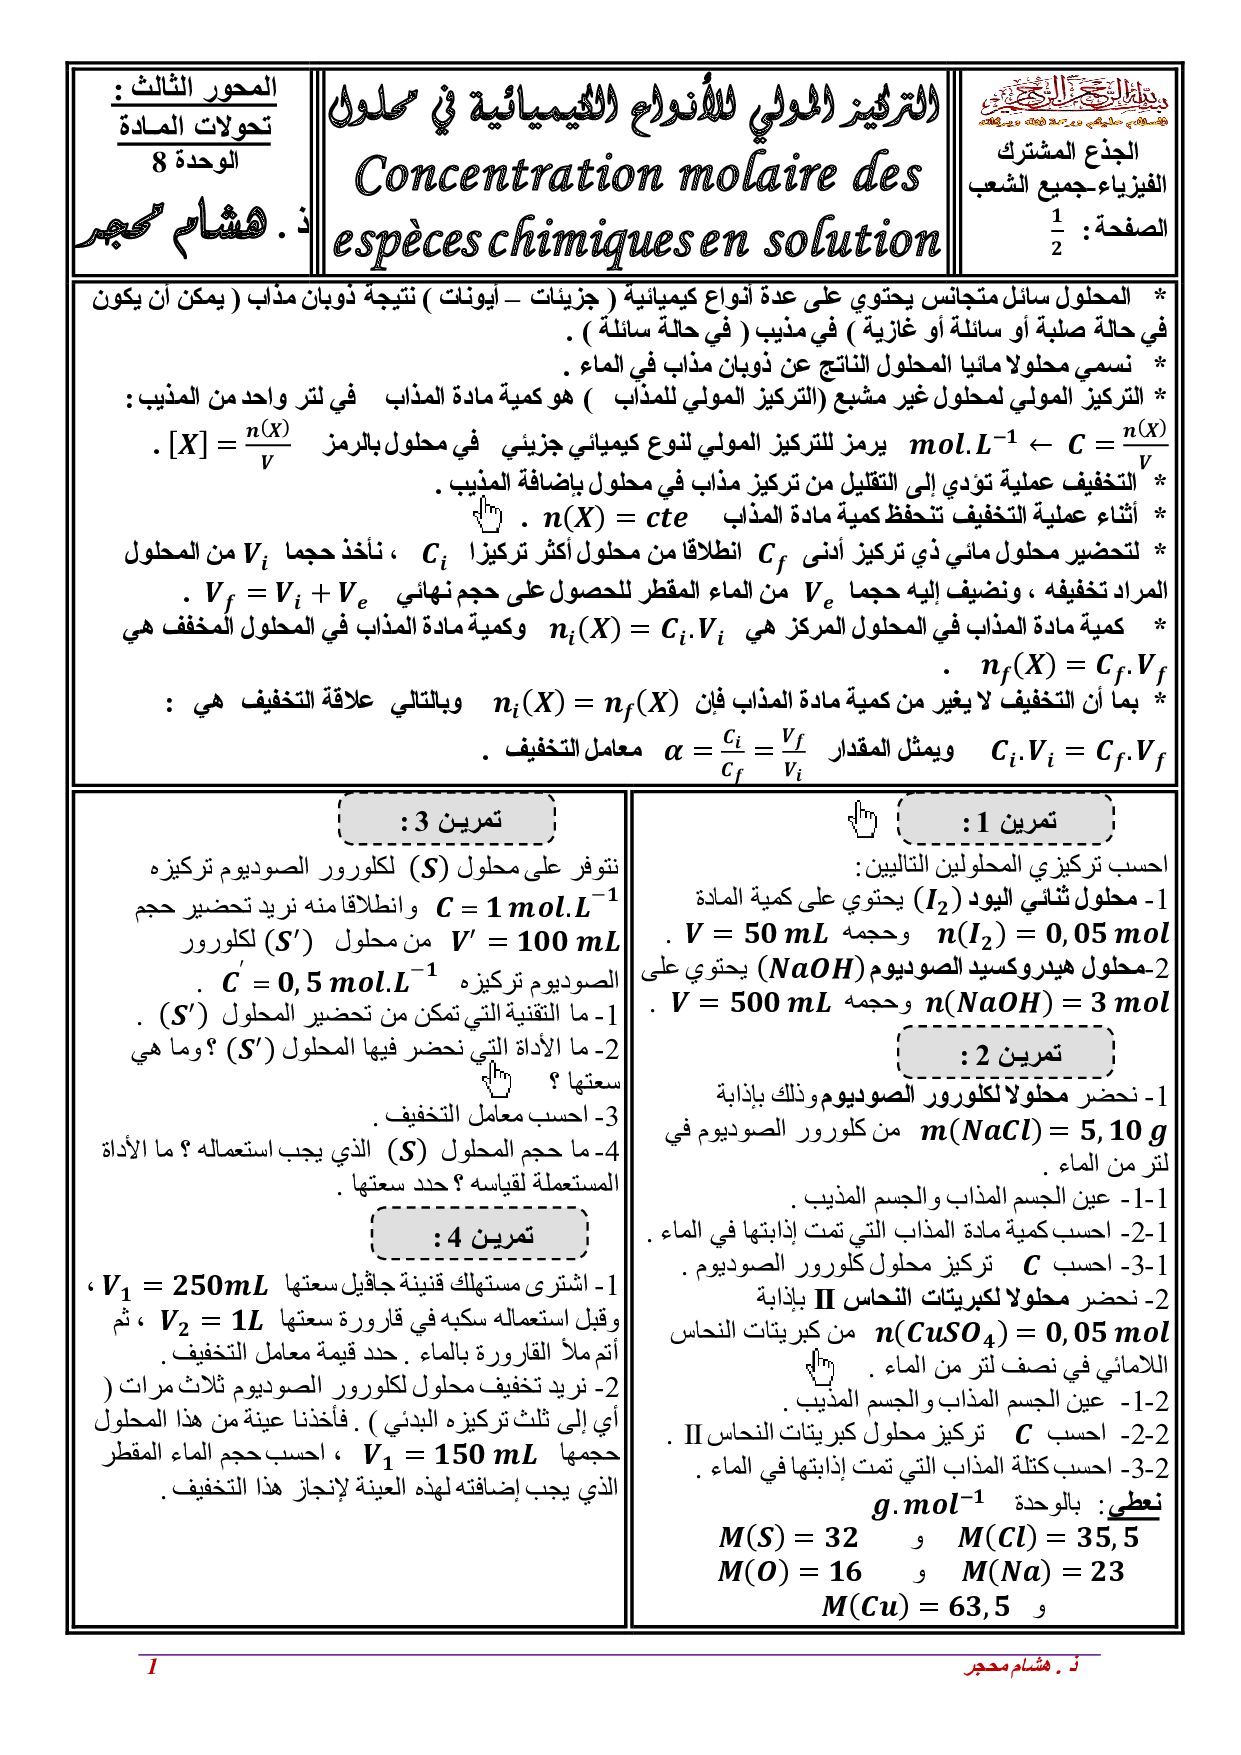 الجذع المشترك
الفيزياء-جميع الشعب
الصفحة : 1/2
التركيز المولي للأنواع الكيميائية في محلول
Concentration molaire des
espèces chimiques en solution
المحور الثالث :
تحولات المـادة
الوحدة 8
ذ . هشام محجر
* المحلول سائل متجانس يحتوي على عدة أنواع كيميائية ( جزيئات – أيونات ) نتيجة ذوبان مذاب ( يمكن أن يكون
في حالة صلبة أو سائلة أو غازية ) في مذيب ( في حالة سائلة ) .
* نسمي محلولا مائيا المحلول الناتج عن ذوبان مذاب في الماء .
* التركيز المولي لمحلول غير مشبع (التركيز المولي للمذاب ) هو كمية مادة المذاب في لتر واحد من المذيب :
C = n(X)/V → mol.L⁻¹ يرمز للتركيز المولي لنوع كيميائي جزيئي في محلول بالرمز [X] = n(X)/V .
* التخفيف عملية تؤدي إلى التقليل من تركيز مذاب في محلول بإضافة المذيب .
* أثناء عملية التخفيف تنحفظ كمية مادة المذاب n(X) = cte .
* لتحضير محلول مائي ذي تركيز أدنى C_f انطلاقا من محلول أكثر تركيزا C_i ، نأخذ حجما V_i من المحلول
المراد تخفيفه ، ونضيف إليه حجما V_e من الماء المقطر للحصول على حجم نهائي V_f = V_i + V_e .
* كمية مادة المذاب في المحلول المركز هي n_i(X) = C_i.V_i وكمية مادة المذاب في المحلول المخفف هي
n_f(X) = C_f.V_f .
* بما أن التخفيف لا يغير من كمية مادة المذاب فإن n_i(X) = n_f(X) وبالتالي علاقة التخفيف هي :
C_i.V_i = C_f.V_f ويمثل المقدار α = C_i/C_f = V_f/V_i معامل التخفيف .
تمرين 1 :
احسب تركيزي المحلولين التاليين:
1- محلول ثنائي اليود (I₂) يحتوي على كمية المادة
n(I₂) = 0,05 mol وحجمه V = 50 mL .
2-محلول هيدروكسيد الصوديوم (NaOH) يحتوي على
n(NaOH) = 3 mol وحجمه V = 500 mL .
تمريـن 2 :
1- نحضر محلولا لكلورور الصوديوم وذلك بإذابة
m(NaCl) = 5,10 g من كلورور الصوديوم في
لتر من الماء .
1-1- عين الجسم المذاب والجسم المذيب .
1-2- احسب كمية مادة المذاب التي تمت إذابتها في الماء .
1-3- احسب C تركيز محلول كلورور الصوديوم .
2- نحضر محلولا لكبريتات النحاس II بإذابة
n(CuSO₄) = 0,05 mol من كبريتات النحاس
اللامائي في نصف لتر من الماء .
2-1- عين الجسم المذاب والجسم المذيب .
2-2- احسب C تركيز محلول كبريتات النحاس II .
2-3- احسب كتلة المذاب التي تمت إذابتها في الماء .
نعطي : بالوحدة g.mol⁻¹
M(Cl) = 35,5 و M(S) = 32
M(Na) = 23 و M(O) = 16
و M(Cu) = 63,5
تمريـن 3 :
نتوفر على محلول (S) لكلورور الصوديوم تركيزه
C = 1 mol.L⁻¹ وانطلاقا منه نريد تحضير حجم
V′ = 100 mL من محلول (S′) لكلورور
الصوديوم تركيزه C′ = 0,5 mol.L⁻¹ .
1- ما التقنية التي تمكن من تحضير المحلول (S′) .
2- ما الأداة التي نحضر فيها المحلول (S′) ؟ وما هي
سعتها ؟
3- احسب معامل التخفيف .
4- ما حجم المحلول (S) الذي يجب استعماله ؟ ما الأداة
المستعملة لقياسه ؟ حدد سعتها .
تمريـن 4 :
1- اشترى مستهلك قنينة جاڤيل سعتها V₁ = 250mL ،
وقبل استعماله سكبه في قارورة سعتها V₂ = 1L ، ثم
أتم ملأ القارورة بالماء . حدد قيمة معامل التخفيف .
2- نريد تخفيف محلول لكلورور الصوديوم ثلاث مرات (
أي إلى ثلث تركيزه البدئي ) . فأخذنا عينة من هذا المحلول
حجمها V₁ = 150 mL ، احسب حجم الماء المقطر
الذي يجب إضافته لهذه العينة لإنجاز هذا التخفيف .
ذ . هشام محجر
1